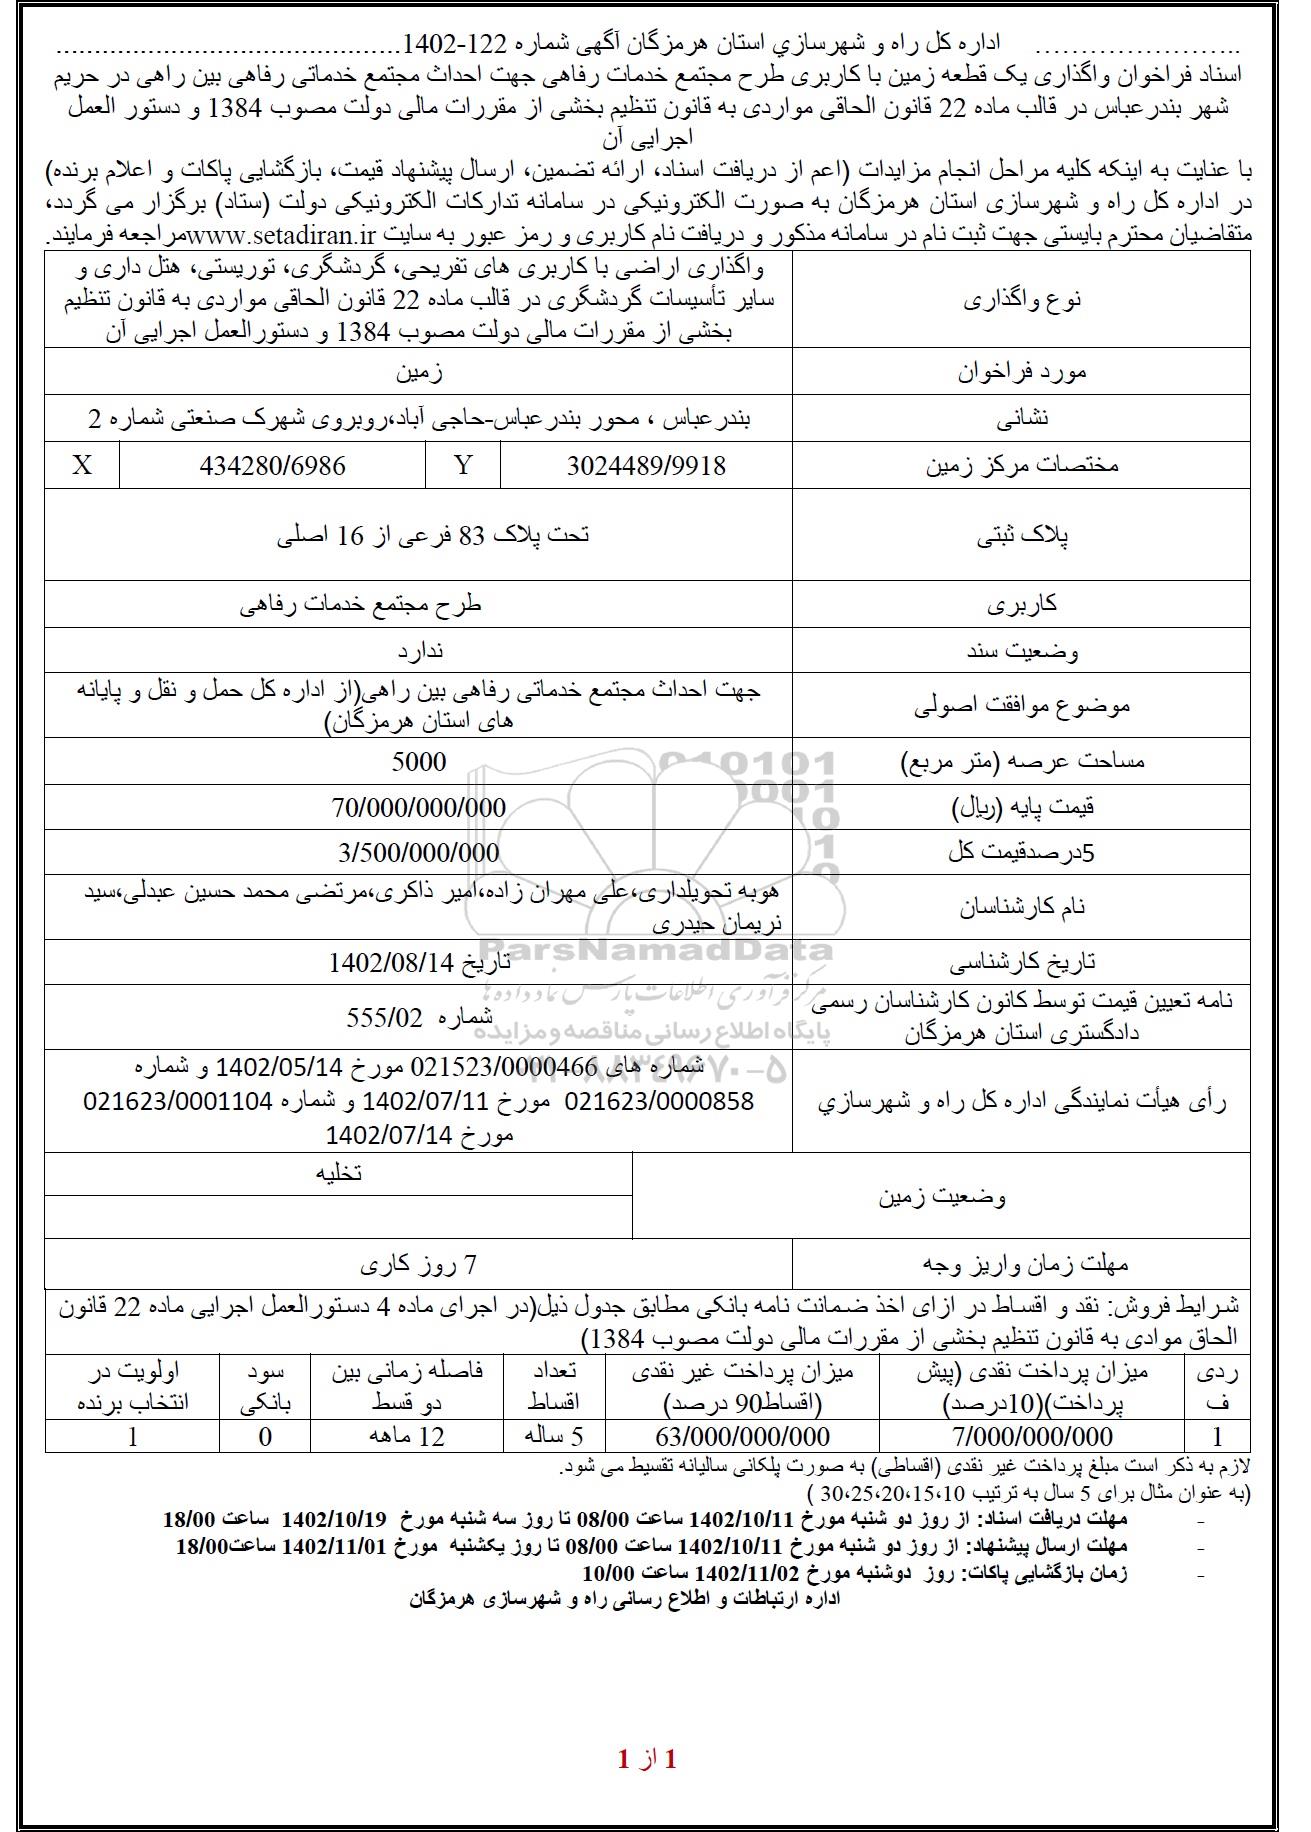 ........................ اداره کل راه و شهرسازي استان هرمزگان آگهی شماره 122-1402.............................................
اسناد فراخوان واگذاری یک قطعه زمین با کاربری طرح مجتمع خدمات رفاهی جهت احداث مجتمع خدماتی رفاهی بین راهی در حریم
شهر بندرعباس در قالب ماده 22 قانون الحاقی مواردی به قانون تنظیم بخشی از مقررات مالی دولت مصوب 1384 و دستور العمل
اجرایی آن
با عنایت به اینکه کلیه مراحل انجام مزایدات (اعم از دریافت اسناد، ارائه تضمین، ارسال پیشنهاد قیمت، بازگشایی پاکات و اعلام برنده)
در اداره کل راه و شهرسازی استان هرمزگان به صورت الکترونیکی در سامانه تدارکات الکترونیکی دولت (ستاد) برگزار می گردد،
متقاضیان محترم بایستی جهت ثبت نام در سامانه مذکور و دریافت نام کاربری و رمز عبور به سایت www.setadiran.irمراجعه فرمایند.
نوع واگذاری
واگذاری اراضی با کاربری های تفریحی، گردشگری، توریستی، هتل داری و
سایر تأسیسات گردشگری در قالب ماده 22 قانون الحاقی مواردی به قانون تنظیم
بخشی از مقررات مالی دولت مصوب 1384 و دستورالعمل اجرایی آن
مورد فراخوان
زمین
نشانی
بندرعباس ، محور بندرعباس-حاجی آباد،روبروی شهرک صنعتی شماره 2
مختصات مرکز زمین
3024489/9918
Y
434280/6986
X
پلاک ثبتی
تحت پلاک 83 فرعی از 16 اصلی
کاربری
طرح مجتمع خدمات رفاهی
وضعیت سند
ندارد
موضوع موافقت اصولی
جهت احداث مجتمع خدماتی رفاهی بین راهی(از اداره کل حمل و نقل و پایانه
های استان هرمزگان)
مساحت عرصه (متر مربع)
5000
قیمت پایه (ریال)
70/000/000/000
5درصدقیمت کل
3/500/000/000
نام کارشناسان
هوبه تحویلداری،علی مهران زاده،امیر ذاکری،مرتضی محمد حسین عبدلی،سید
نریمان حیدری
ParsNamadData
تاریخ کارشناسی
تاریخ 1402/08/14
مرکز فرآوری اطلاعات پارس نماد داده ها
نامه تعیین قیمت توسط کانون کارشناسان رسمی
دادگستری استان هرمزگان
شماره 555/02
پایگاه اطلاع رسانی مناقصه و مزایده
رأی هیأت نمایندگی اداره کل راه و شهرسازي
شماره های 021523/0000466 مورخ 1402/05/14 و شماره
021623/0000858 مورخ 1402/07/11 و شماره 021623/0001104
مورخ 1402/07/14
وضعیت زمین
تخلیه
مهلت زمان واریز وجه
7 روز کاری
شرایط فروش: نقد و اقساط در ازای اخذ ضمانت نامه بانکی مطابق جدول ذیل(در اجرای ماده 4 دستورالعمل اجرایی ماده 22 قانون
الحاق موادی به قانون تنظیم بخشی از مقررات مالی دولت مصوب 1384)
ردی
ف
میزان پرداخت نقدی (پیش
پرداخت)(10درصد)
میزان پرداخت غیر نقدی
(اقساط90 درصد)
تعداد
اقساط
فاصله زمانی بین
دو قسط
سود
بانکی
اولویت در
انتخاب برنده
1
7/000/000/000
63/000/000/000
5 ساله
12 ماهه
0
1
لازم به ذکر است مبلغ پرداخت غیر نقدی (اقساطی) به صورت پلکانی سالیانه تقسیط می شود.
(به عنوان مثال برای 5 سال به ترتیب 10،15،20،25،30 )
- مهلت دریافت اسناد: از روز دو شنبه مورخ 1402/10/11 ساعت 08/00 تا روز سه شنبه مورخ 1402/10/19 ساعت 18/00
- مهلت ارسال پیشنهاد: از روز دو شنبه مورخ 1402/10/11 ساعت 08/00 تا روز یکشنبه مورخ 1402/11/01 ساعت18/00
- زمان بازگشایی پاکات: روز دوشنبه مورخ 1402/11/02 ساعت 10/00
اداره ارتباطات و اطلاع رسانی راه و شهرسازی هرمزگان
1 از 1